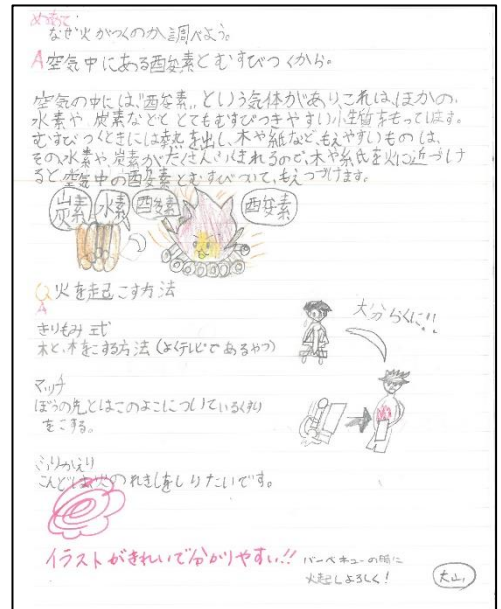 めあて
なぜ火がつくのか調べよう。
A 空気中にある酸素とむすびつくから。
空気の中には、"酸素"という気体があり、これは、ほかの、
水素や炭素などととてもむすびつきやすい性質をもってます。
むすびつくときには熱を出し、木や紙など、もえやすいものは、
その水素や、炭素がたくさんふくまれるので、木や紙を火に近づけ
ると、空気中の酸素とむすびついて、もえつづけます。
炭素 水素 酸素 酸素
Q 火を起こす方法
A
きりもみ式
木と、木をこする方法(よくテレビであるやつ)
大分らくに!!
マッチ
ぼうの先とはこのよこについているくすり
をこする。
ふりかえり
こんどは火のれきしをしりたいです。
イラストがきれいで分かりやすい!!
バーベキューの時に
火起しよろしく!
大山